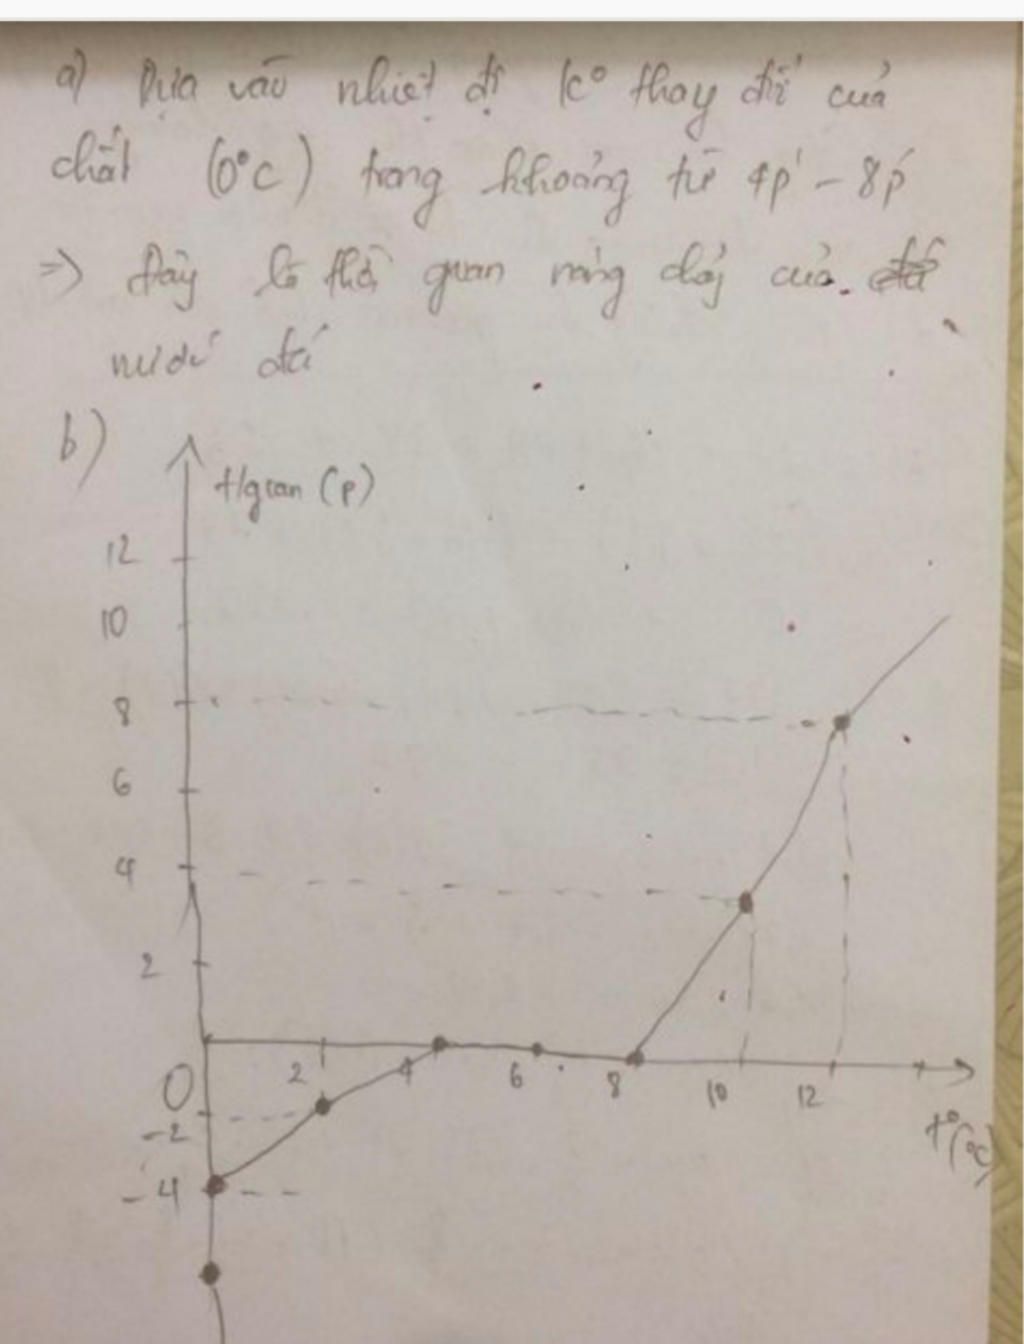 a) Dựa vào nhiệt độ k° thay đổi của
chất (0°C) trong khoảng từ 4p' - 8p'
=> Đây là thời quan nóng chảy của
nước đá
b)
t/gian (p)
12
10
8
6
4
2
0
2 4 6 8 10 12
t°(°C)
-2
-4